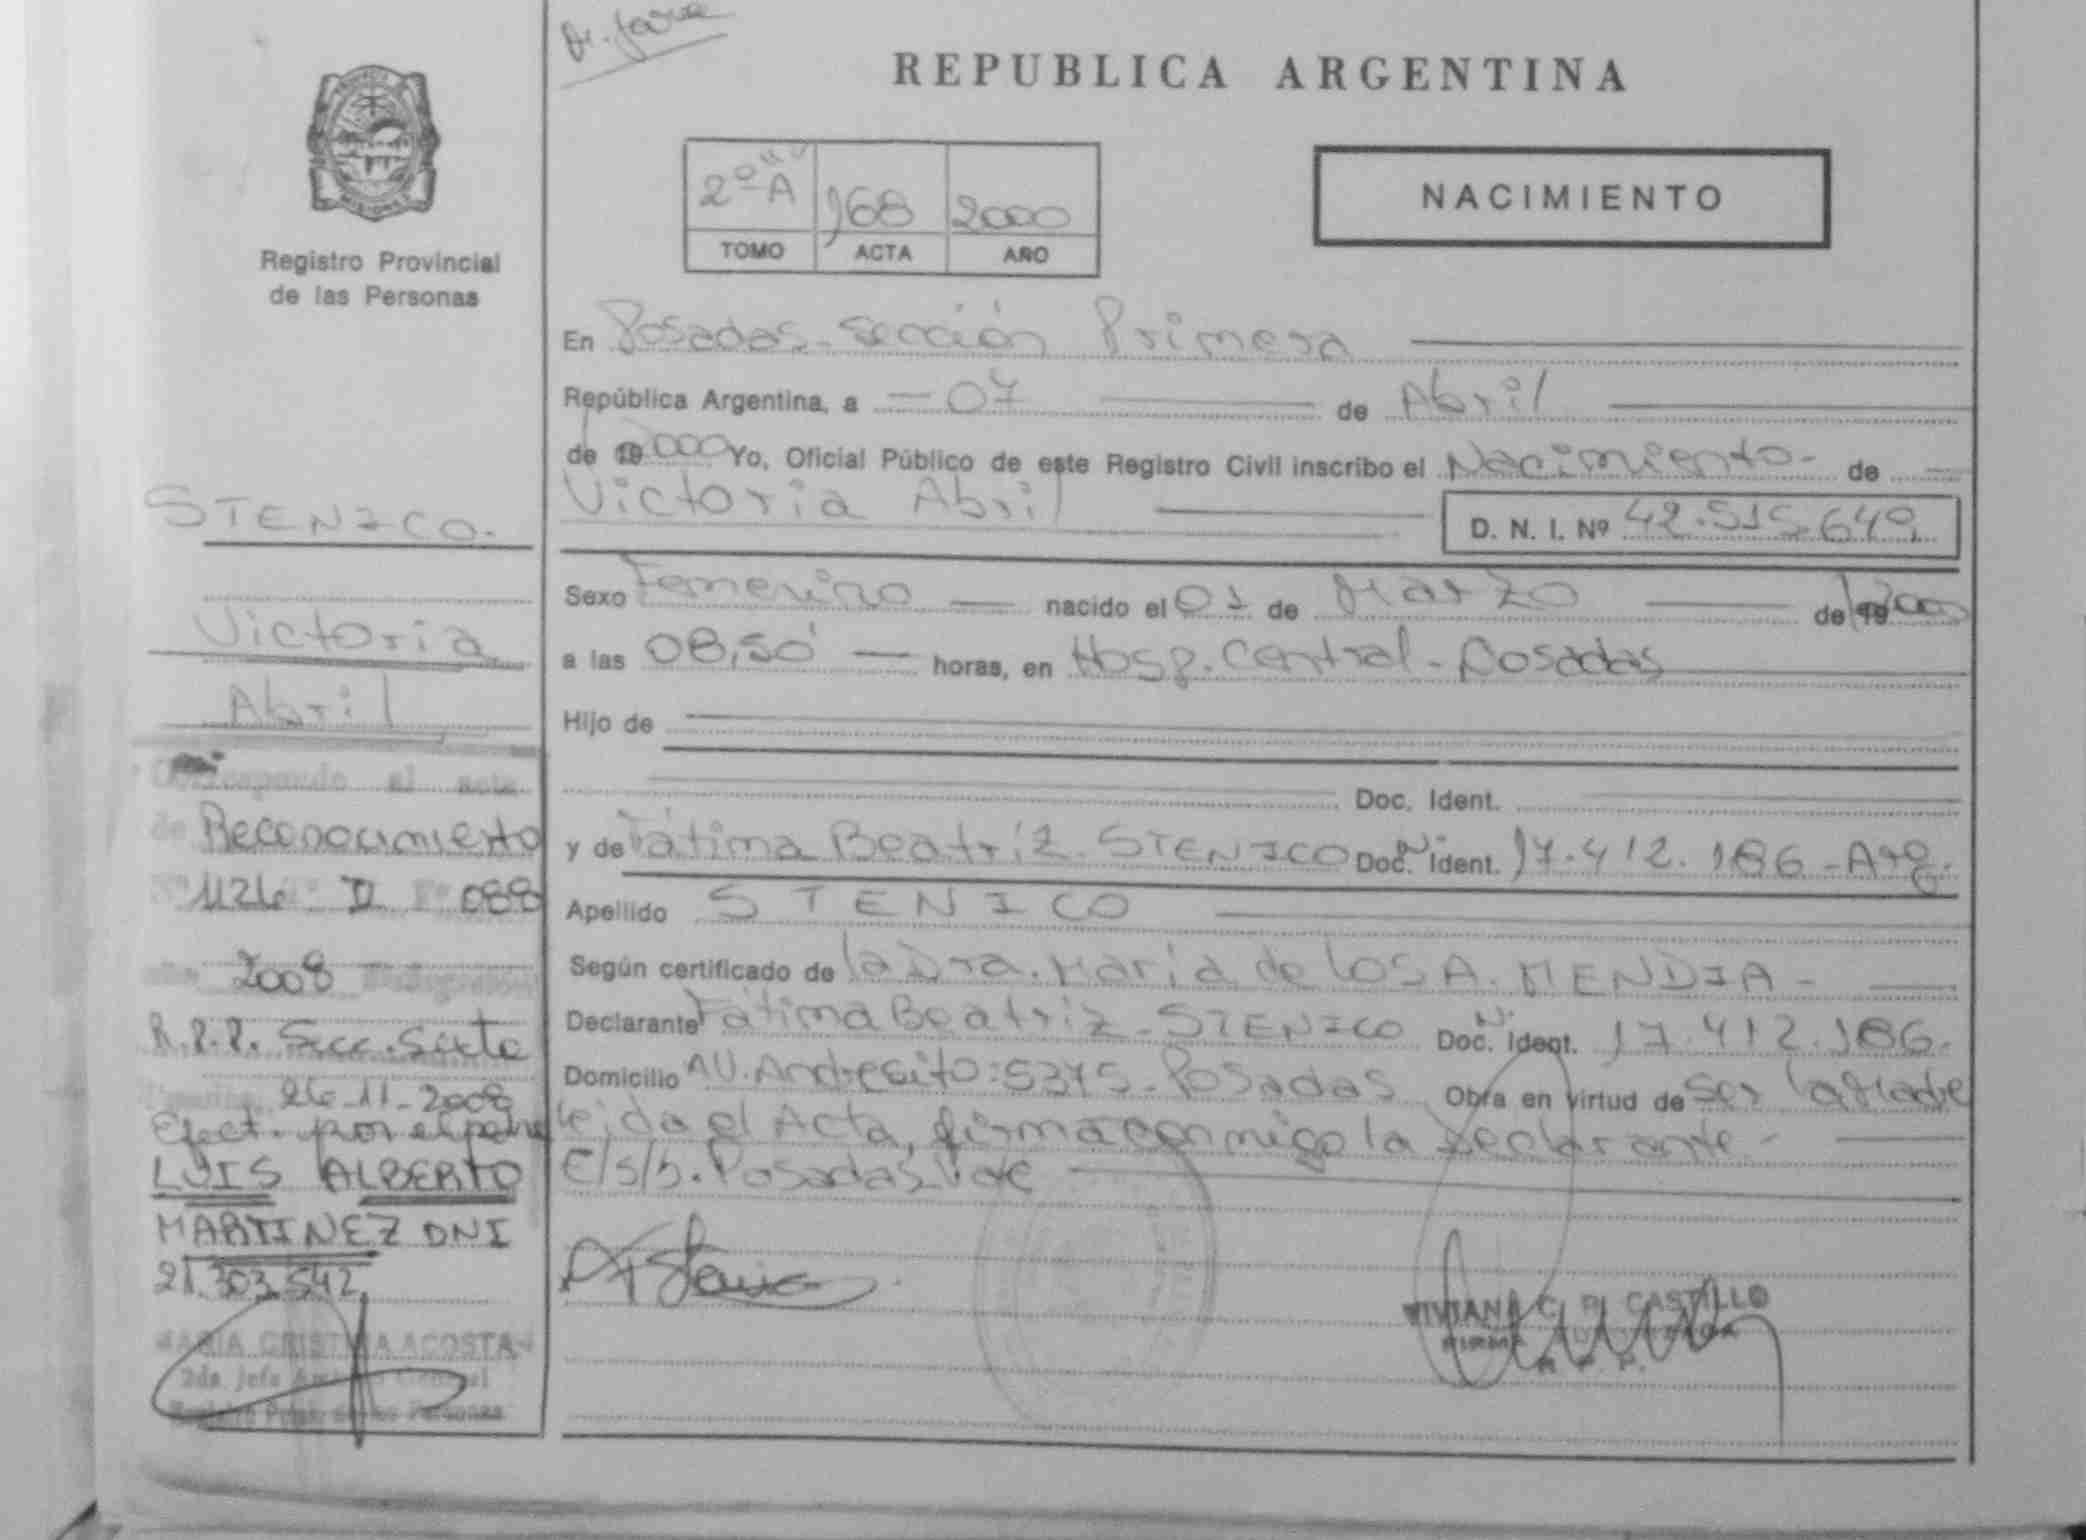 REPUBLICA ARGENTINA
NACIMIENTO
2º A 168 2000
TOMO ACTA AÑO
MISIONES
Registro Provincial
de las Personas
STENICO.
Victoria
Abril
Corresponde al acta
de Reconocimiento
Nº 1126 Tº II Fº 088
año 2008
R.P.P. Secc. Sexta
26-11-2008
Efect. por el padre
LUIS ALBERTO
MARTINEZ DNI
21.303.542
MARIA CRISTINA ACOSTA
2da. Jefe Archivo General
Registro Prov. de las Personas
En Posadas - Sección Primera
República Argentina, a 07 de Abril
de 19 2000 Yo, Oficial Público de este Registro Civil inscribo el Nacimiento - de
Victoria Abril D. N. I. Nº 42.515.649
Sexo Femenino nacido el 01 de Marzo de 19 2000
a las 08,50' horas, en Hosp. Central - Posadas
Hijo de
Doc. Ident.
y de Fátima Beatríz STENICO Doc. Ident. 17.412.186 - Arg.
Apellido STENICO
Según certificado de la Dra. María de los A. MENDIA -
Declarante Fátima Beatríz STENICO Doc. Ident. 17.412.186.
Domicilio AV. Andresito: 5375 - Posadas Obra en virtud de ser la Madre
leída el Acta, firma conmigo la declarante -
E/s/b. Posadas Vale
VIVIANA C. D. CASTILLO
FIRMA AUTORIZADA
R. P. P.